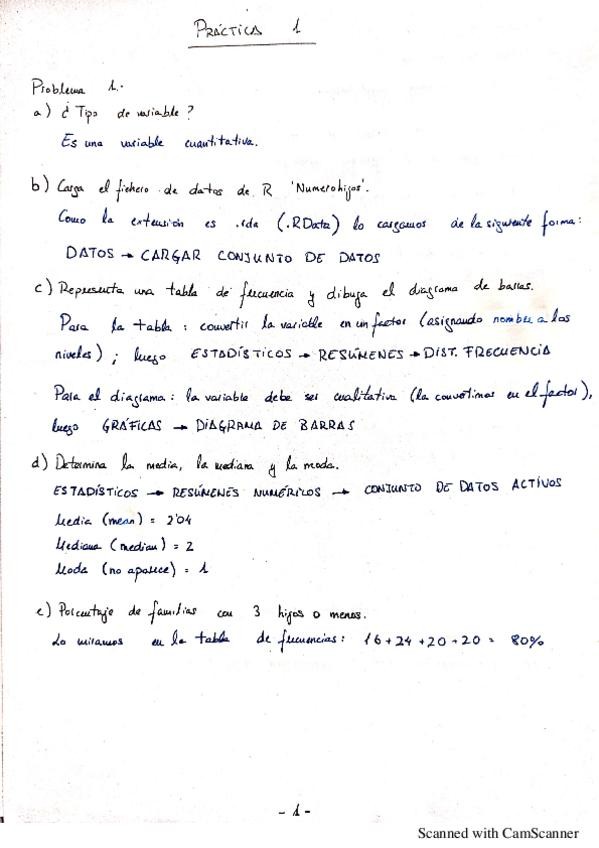 PRÁCTICA 1
Problema 1.-
a) ¿Tipo de variable?
Es una variable cuantitativa.
b) Carga el fichero de datos de R 'Numerohijos'.
Como la extensión es .rda (.RData) lo cargamos de la siguiente forma:
DATOS → CARGAR CONJUNTO DE DATOS
c) Representa una tabla de frecuencia y dibuja el diagrama de barras.
Para la tabla: convertir la variable en un factor (asignando nombre a los
niveles); luego ESTADÍSTICOS → RESÚMENES → DIST. FRECUENCIA
Para el diagrama: la variable debe ser cualitativa (la convertimos en el factor),
luego GRÁFICAS → DIAGRAMA DE BARRAS
d) Determina la media, la mediana y la moda.
ESTADÍSTICOS → RESÚMENES NUMÉRICOS → CONJUNTO DE DATOS ACTIVOS
Media (mean) = 2'04
Mediana (median) = 2
Moda (no aparece) = 1
e) Porcentaje de familias con 3 hijos o menos.
Lo miramos en la tabla de frecuencias: 16+24+20+20 = 80%
- 1 -
Scanned with CamScanner